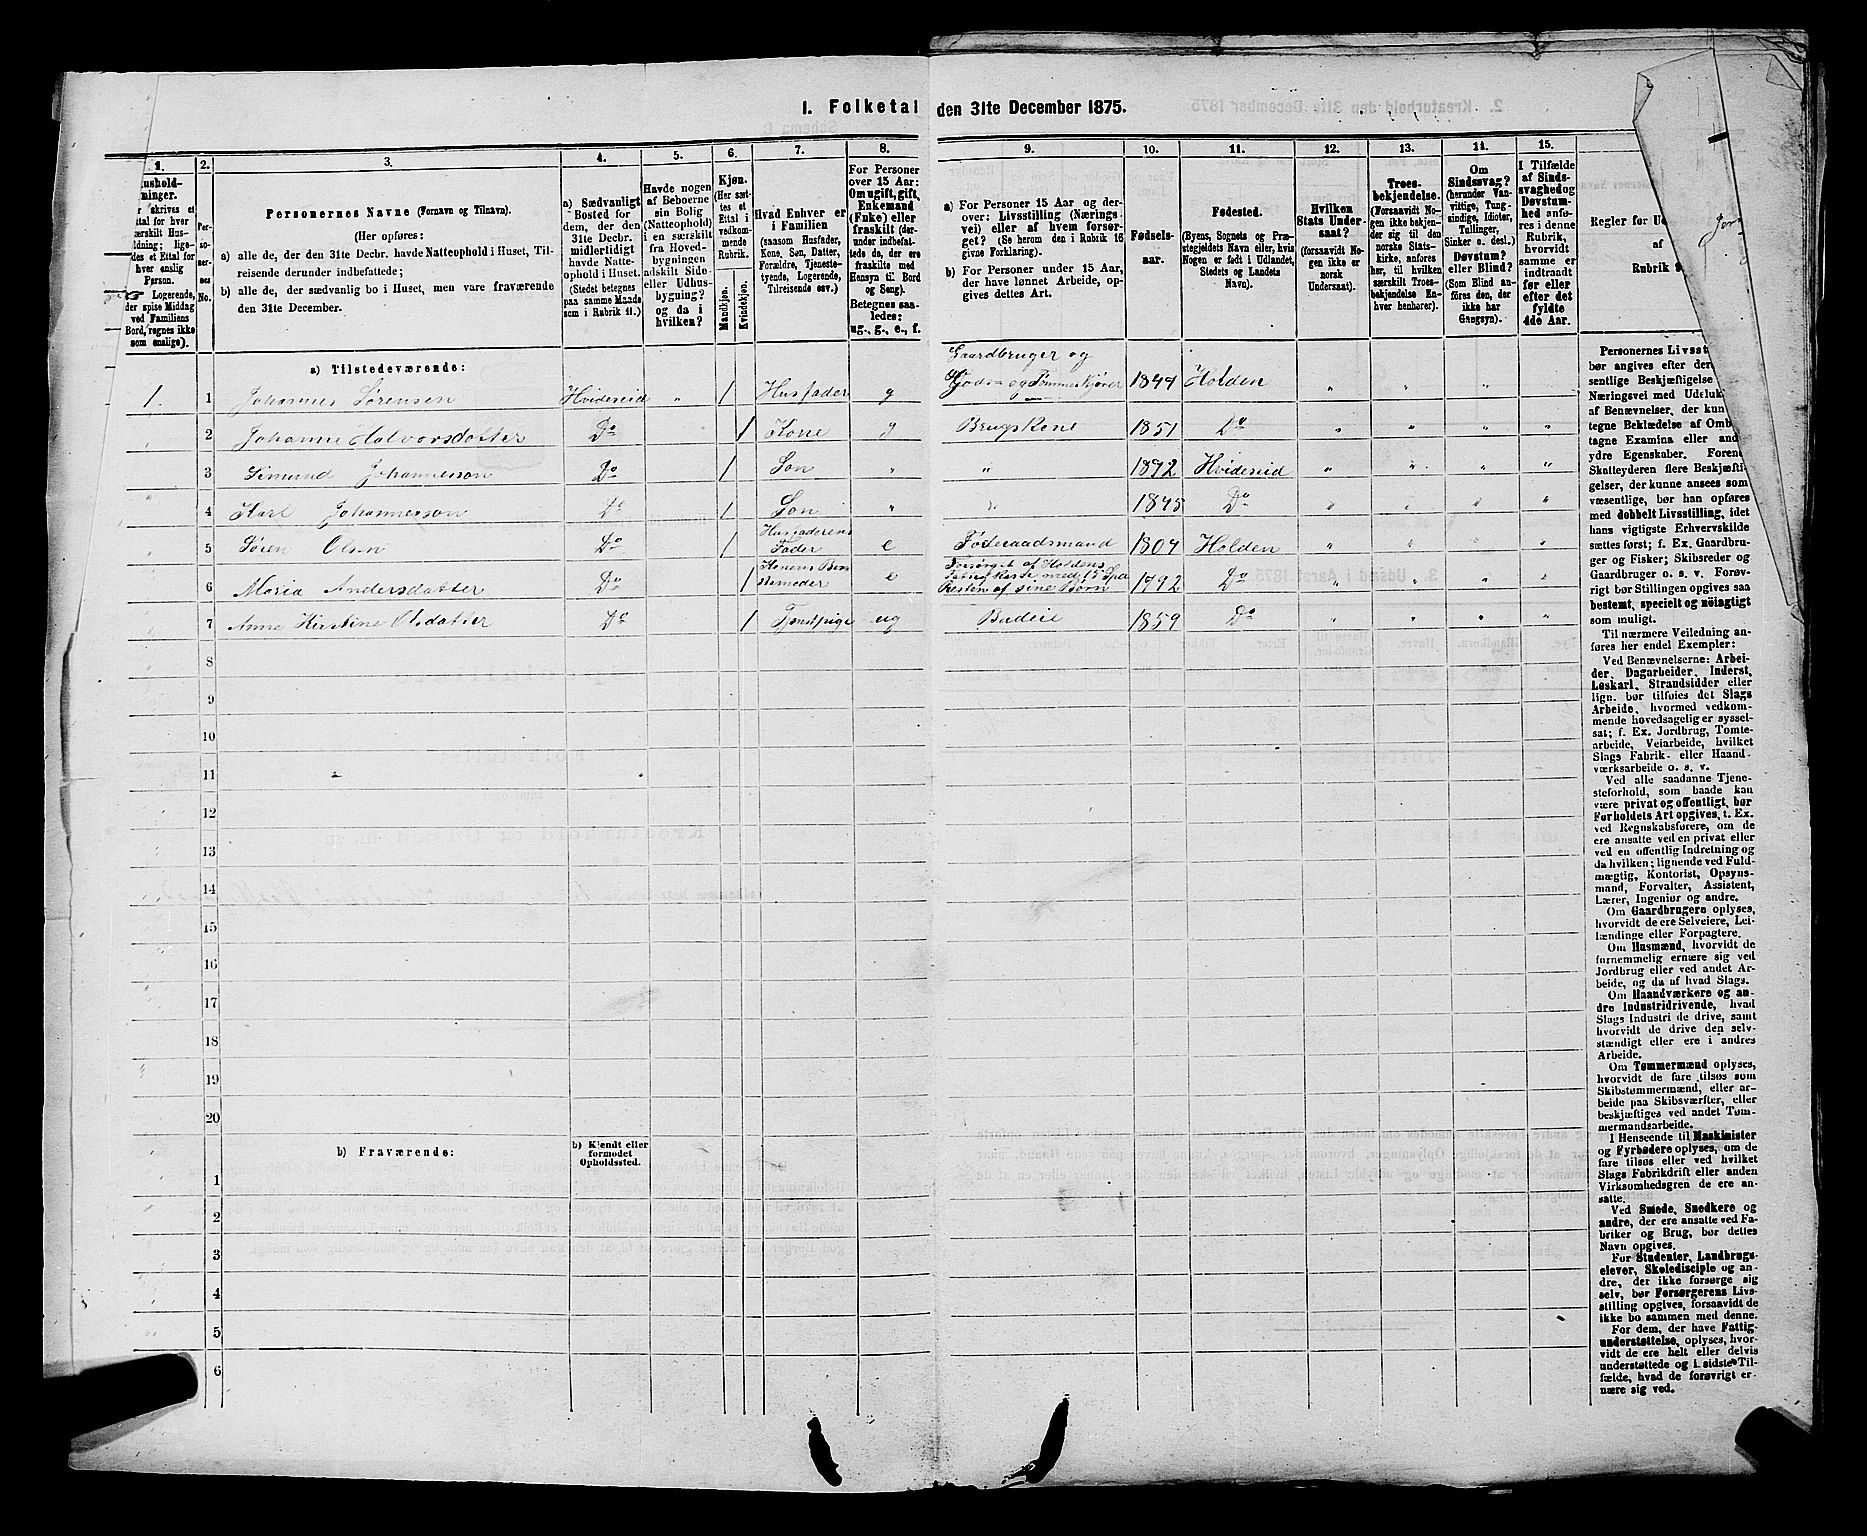 I. Folketal den 31te December 1875.
1. 2. 3. 4. 5. 6. 7. 8. 9. 10. 11. 12. 13. 14. 15.
Personernes Navne (Fornavn og Tilnavn).
(Her opføres:
a) alle de, der den 31te Decbr. havde Natteophold i Huset, Tilreisende derunder indbefattede;
b) alle de, der sædvanlig bo i Huset, men vare fraværende den 31te December.
a) Sædvanligt Bosted for dem, der den 31te Decbr. midlertidigt havde Natteophold i Huset. (Stedet betegnes paa samme Maade som i Rubrik 11.)
Havde nogen af Beboerne sin Bolig (Natteophold) i en særskilt fra Hovedbygningen adskilt Side- eller Udhusbygning? og da i hvilken?
Kjøn. (Her sættes et Ettal i vedkommende Rubrik.
Mandkjøn. Kvindekjøn.
Hvad Enhver er i Familien (saasom Husfader, Kone, Søn, Datter, Forældre, Tjenestetyende, Logerende, Tilreisende osv.)
For Personer over 15 Aar: Om ugift, gift, Enkemand (Enke) eller fraskilt (derunder indbefattede de, der ere fraskilte med Hensyn til Bord og Seng).
Betegnes saaledes: ug., g., e., f.
a) For Personer 15 Aar og derover: Livsstilling (Næringsvei) eller af hvem forsørget? (Se herom den i Rubrik 16 givne Forklaring).
b) For Personer under 15 Aar, der have lønnet Arbeide, opgives dettes Art.
Fødselsaar.
Fødested. (Byens, Sognets og Præstegjeldets Navn eller, hvis Nogen er født i Udlandet, Stedets og Landets Navn).
Hvilken Stats Undersaat? (forsaavidt Nogen ikke er norsk Undersaat).
Troesbekjendelse. (Forsaavidt Nogen ikke bekjender sig til den norske Statskirke, anføres her, til hvilken særskilt Troesbekjendelse Enhver henhører).
Om Sindssvag? (herunder Vanvittige, Tungsindige, Idioter, Tullinger, Sinker o. desl.) Døvstum? eller Blind? (Som Blind anføres den, der ikke har Gangsyn).
I Tilfælde af Sindssvaghed og Døvstumhed anføres i denne Rubrik, hvorvidt samme er indtraadt før eller efter det fyldte 4de Aar.
a) Tilstedeværende:
1. 1 Johannes Sørensen Hvideseid " 1 Husfader g Gaardbruger og Gods- og Tømmerkjører 1844 Holden " " "
2 Johanne Halvorsdatter Do 1 Kone g Brugskone 1851 Do " " " "
3 Simund Johannesson Do 1 Søn " " 1872 Hvideseid " " " "
4 Karl Johannesson Do 1 Søn " " 1875 Do " " " "
5 Søren Olsen Do 1 Husfaderens Fader e Føderaadsmand 1804 Holden " " " "
6 Maria Andersdatter Do 1 Konens Bestemoder e Forsørget af Holdens med 15 Spd Resten af sine Børn 1792 Do " " " "
7 Anne Kirstine Olsdatter Do 1 Tjenstpige ug Budeie 1859 Do " " " "
8
9
10
11
12
13
14
15
16
17
18
19
20
b) Fraværende:
b) Kjendt eller formodet Opholdssted.
1
2
3
4
5
6
Personernes Livsst
bør angives efter der
sentlige Beskjæftigelse
Næringsvei med Udeluk
af Benævnelser, der kun
tegne Beklædelse af Omb
tagne Examina eller and
ydre Egenskaber. Foren
Skatteyderen flere Beskjæfti
gelser, der kunne ansees som
væsentlige, bør han opføres
med dobbelt Livsstilling, idet
hans vigtigste Erhvervskilde
sættes først; f. Ex. Gaardbru-
ger og Fisker; Skibsreder og
Gaardbruger o. s. v. Forøv-
rigt bør Stillingen opgives saa
bestemt, specielt og nöiagtigt
som muligt.
Til nærmere Veiledning an-
føres her endel Exempler:
Ved Benævnelserne: Arbei-
der, Dagarbeider, Inderst,
Løskarl, Strandsidder eller
lign. bør tilføies det Slags
Arbeide, hvormed vedkom-
mende hovedsagelig er syssel-
sat; f. Ex. Jordbrug, Tomte-
arbeide, Veiarbeide, hvilket
Slags Fabrik- eller Haand-
værksarbeide o. s. v.
Ved alle saadanne Tjene-
steforhold, som baade kan
være privat og offentligt, bør
Forholdets Art opgives, t. Ex.
ved Regnskabsførere, om de
ere ansatte ved en privat eller
ved en offentlig Indretning og
da hvilken; lignende ved Fuld-
mægtig, Kontorist, Opsyns-
mand, Forvalter, Assistent,
Lærer, Ingeniør og andre.
Om Gaardbrugere oplyses,
hvorvidt de ere Selveiere, Lei-
lændinge eller Forpagtere.
Om Husmænd, hvorvidt de
fornemmelig ernære sig ved
Jordbrug eller ved andet Ar-
beide, og da af hvad Slags.
Om Haandværkere og an-
dre Industridrivende, hvad
Slags Industri de drive, samt
hvorvidt de drive den selv-
stændigt eller ere i andres
Arbeide.
Om Tømmermænd oplyses,
hvorvidt de fare tilsøs som
Skibstømmermænd, eller ar-
beide paa Skibsværfter, eller
beskjæftiges ved andet Tøm-
mermandsarbeide.
I Henseende til Maskinister
og Fyrbødere oplyses, om de
fare tilsøs eller ved hvilket
Slags Fabrikdrift eller anden
Virksomhedsgren de ere an-
satte.
Ved Smede, Snedkere og
andre, der ere ansatte ved Fa-
briker og Brug, bør dettes
Navn opgives.
For Studenter, Landbrugs-
elever, Skoledisciple og an-
dre, der ikke forsørge sig
selv, bør Forsørgerens Livs-
stilling opgives, forsaavidt de
ikke bo sammen med denne.
For dem, der have Fattig-
understøttelse, oplyses, hvor-
vidt de ere helt eller delvis
understøttede og i sidste Til-
fælde, hvad de forøvrigt er-
nære sig ved.